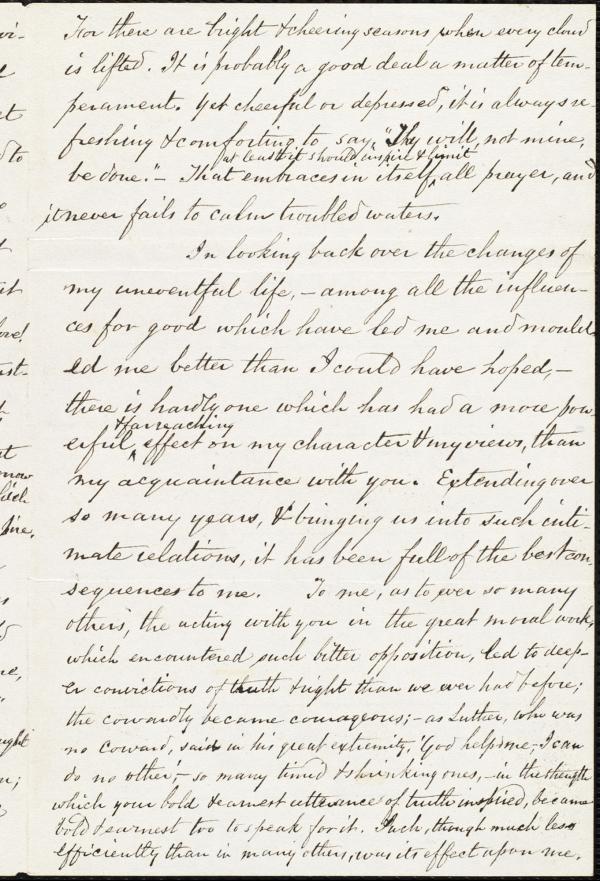 For there are bright & cheering seasons when every cloud
is lifted. It is probably a good deal a matter of tem-
perament. Yet cheerful or depressed, it is always re-
freshing & comforting to say, "Thy will, not mine,
at least it should inspire & limit
be done."- That embraces in itself, all prayer, and
it never fails to calm troubled waters.
In looking back over the changes of
my uneventful life, - among all the influen-
ces for good which have led me and mould-
ed me better than I could have hoped, -
there is hardly one which has had a more pow-
& far reaching
erful, effect on my character & my views, than
my acquaintance with you. Extending over
so many years, & bringing us into such inti-
mate relations, it has been full of the best con-
sequences to me. To me, as to ever so many
others, the acting with you in the great moral work,
which encountered such bitter opposition, led to deep-
er convictions of truth & right than we ever had before;
the cowardly became courageous; - as Luther, who was
no coward, said in his great extremity, 'God help me, - I can
do no other', - so many timid & shrinking ones, - in the strength
which your bold & earnest utterance of truth inspired, became
bold & earnest too to speak for it. Such, though much less
efficiently than in many others, was its effect upon me.